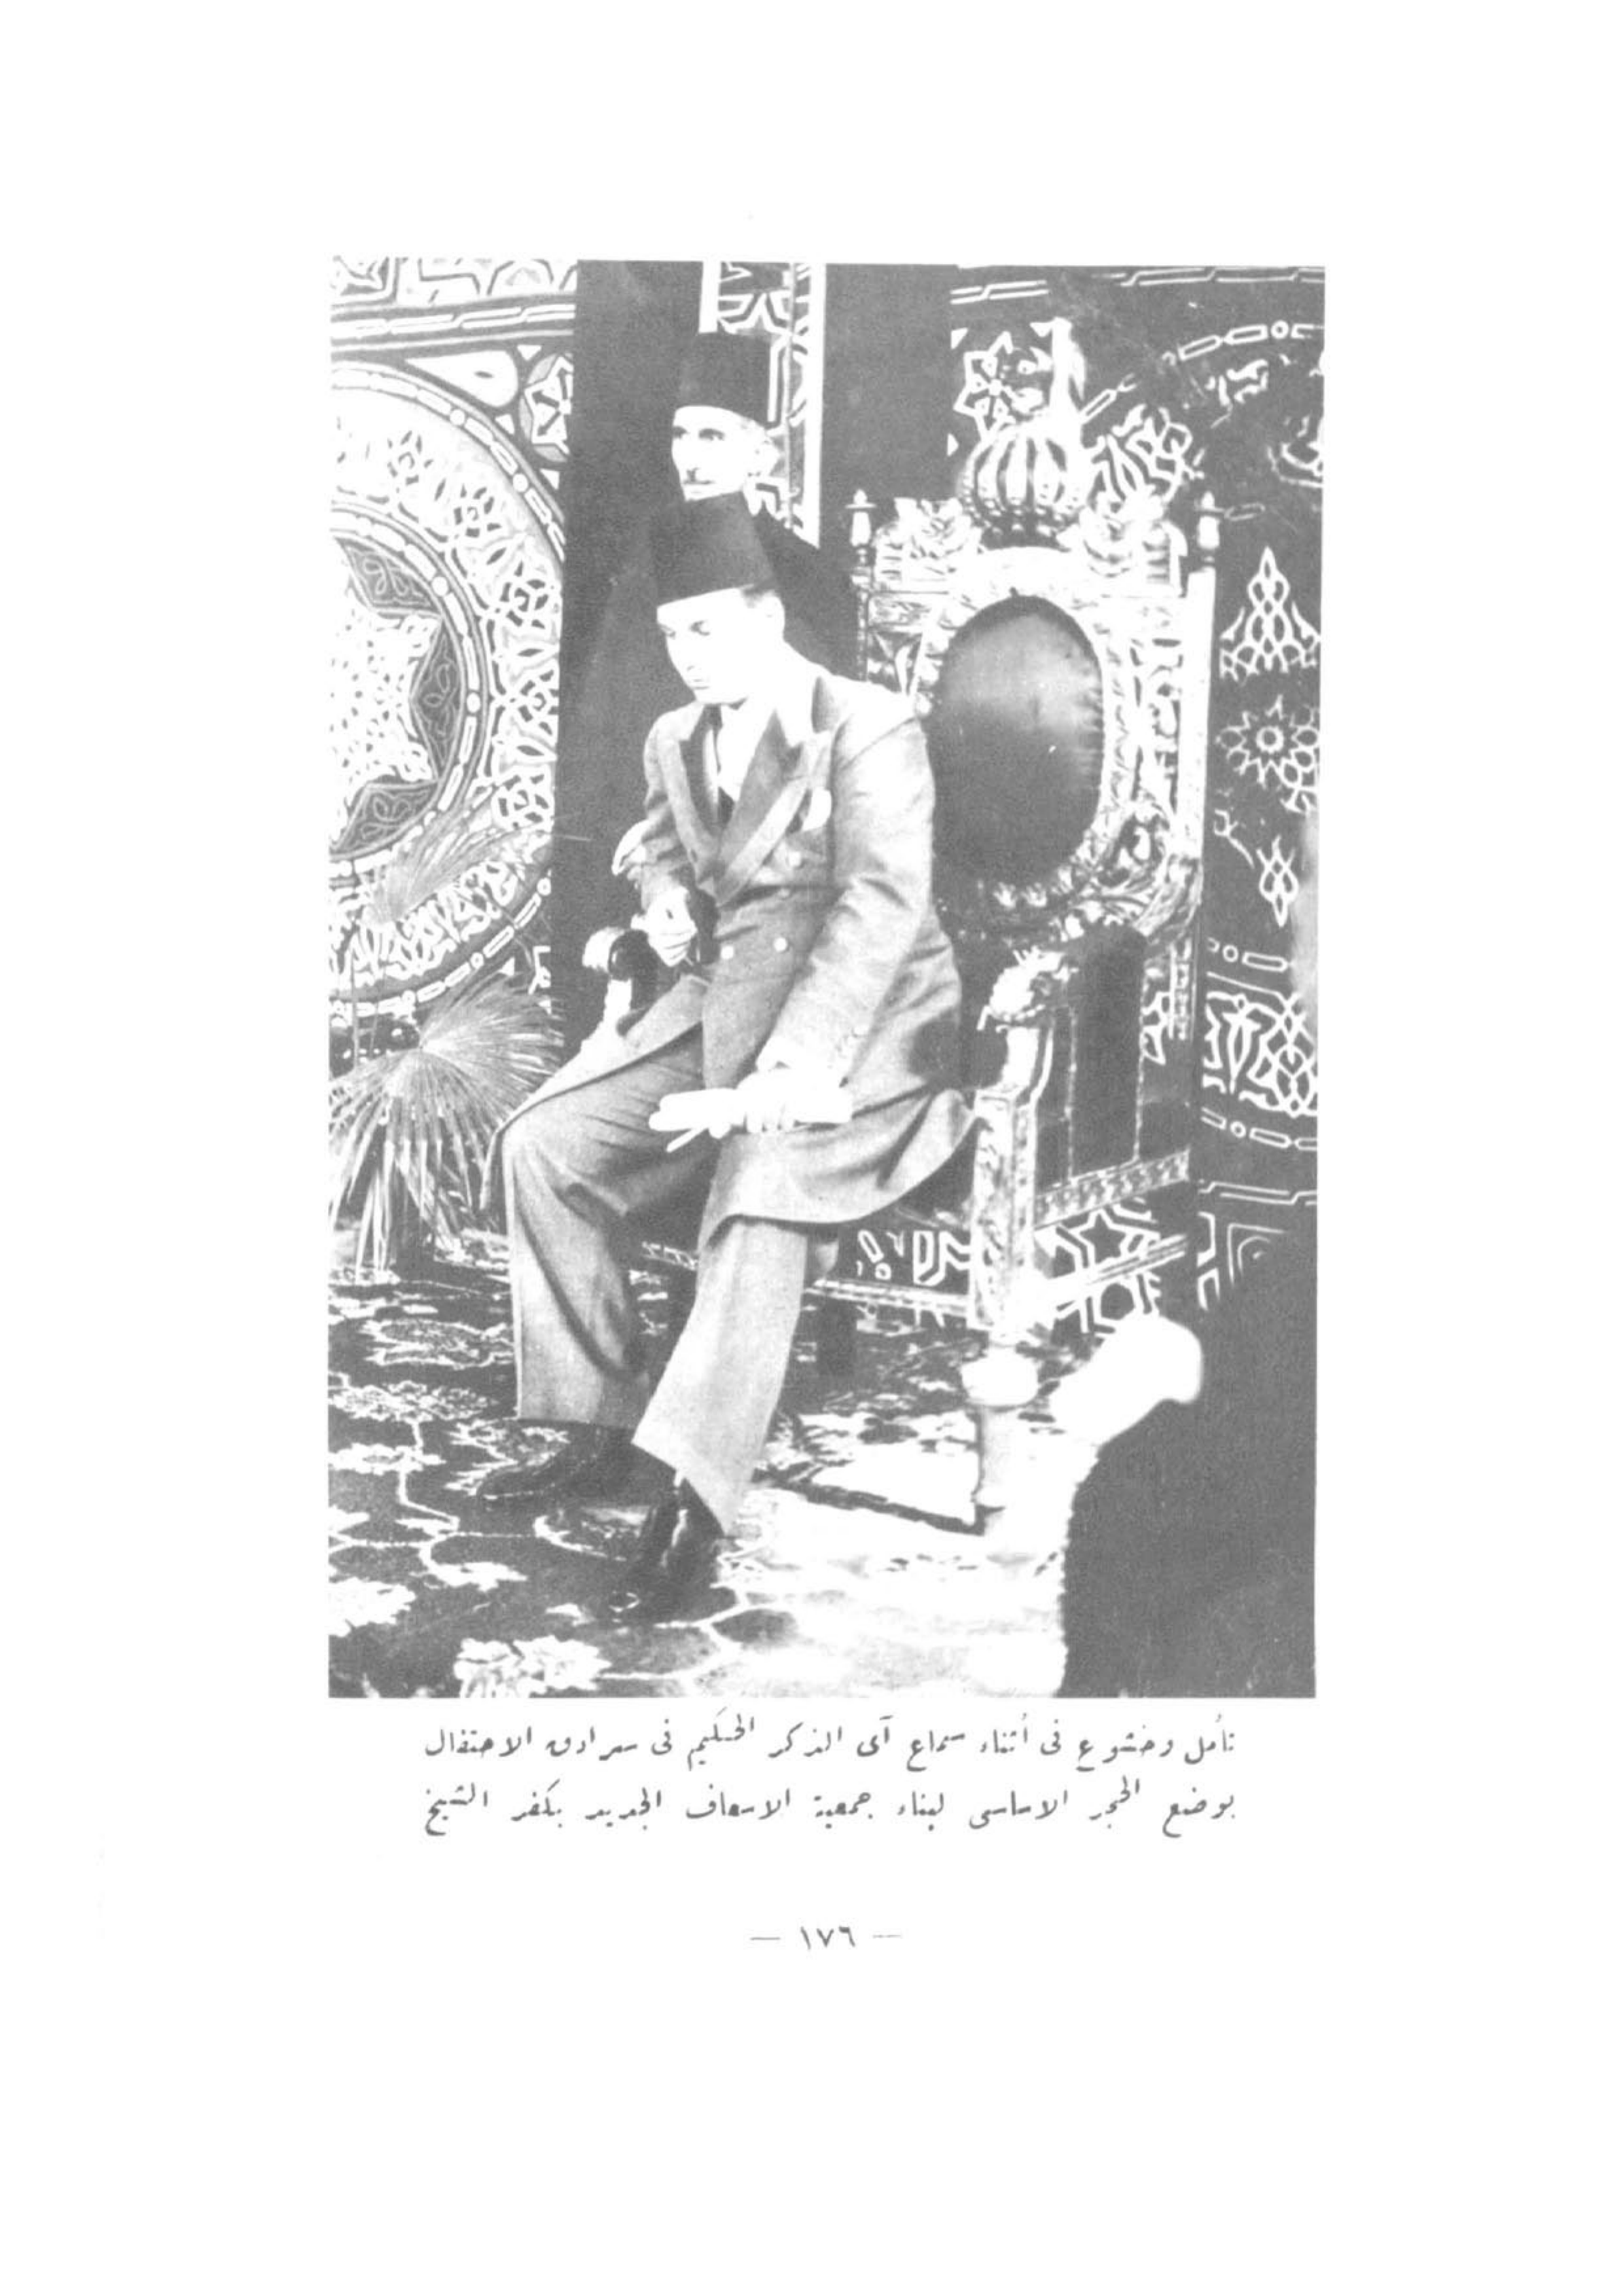 تأمل وخشوع فى أثناء سماع آى الذكر الحكيم فى سرادق الاحتفال
بوضع الحجر الاساسى لبناء جمعية الاسعاف الجديد بكفر الشيخ
— ١٧٦ —